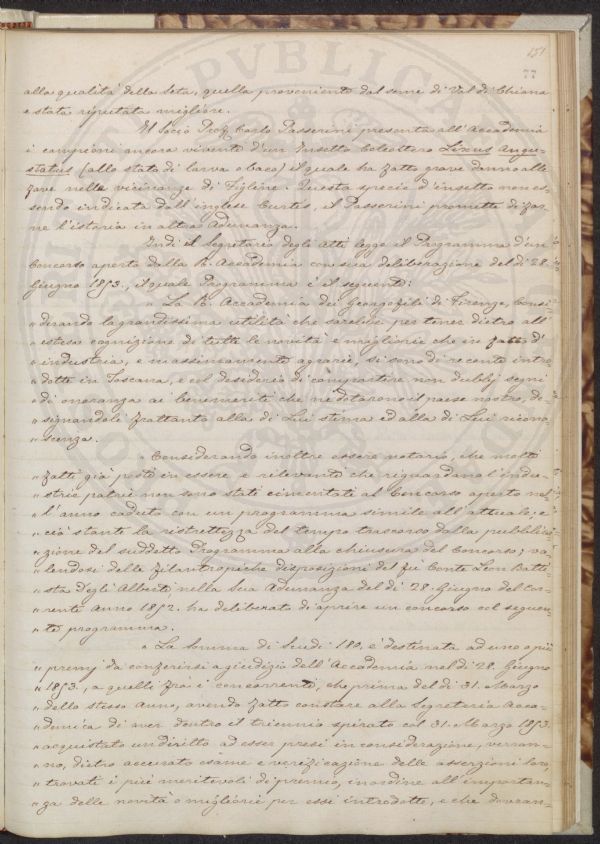 151
77
alla qualità della seta, quella proveniente dal seme di Val di Chiana
è stata reputata migliore.
Il Socio Prof. Carlo Passerini presenta all'Accademia
i campioni ancora viventi d'un Insetto Coleottero Lixus Angu-
status (allo stato di larva o baco) il quale ha fatto grave danno alle
fave nelle vicinanze di Figline. Questa specie d'insetto non es-
sendo indicata dall'inglese Curtis, il Passerini promette di far-
ne l'istoria in altra Adunanza.
Indi il Segretario degli Atti legge il Programma d'un
Concorso aperto dalla R. Accademia con sua deliberazione del dì 28.
Giugno 1853., il quale Programma è il seguente:
" La R. Accademia dei Georgofili di Firenze, Consi-
" derando la grandissima utilità che sarebbe per tener dietro all'
" estesa cognizione di tutte le novità e migliorie che in fatto d'
" industria, e massimamente agraria, si sono di recente intro-
" dotte in Toscana, e col desiderio di compartire non dubbj segni
" di onoranza ai benemeriti che ne dotarono il paese nostro, de-
" signandoli frattanto alla di Lui stima ed alla di Lui ricono-
" scenza.
" Considerando inoltre essere notorio, che molti
" fatti già posti in essere e rilevanti che riguardano l'indu-
" stria patria non sono stati cimentati al Concorso aperto nel-
" l'anno caduto con un programma simile all'attuale, e
" ciò stante la ristrettezza del tempo trascorso dalla pubblica-
" zione del suddetto Programma alla chiusura del Concorso; va-
" lendosi delle filantropiche disposizioni del fu Conte Leon Batti-
" sta Degli Alberti nella Sua Adunanza del dì 28. Giugno del cor-
" rente anno 1852. ha deliberato di aprire un concorso col seguen-
" te programma.
" La Somma di Scudi 180. è destinata ad uno o più
" premj da conferirsi a giudizio dell'Accademia nel dì 28. Giugno
" 1853., a quelli fra i concorrenti, che prima del dì 31. Marzo
" dello stesso Anno, avendo fatto constare alla Segreteria Acca-
" demica di aver dentro il triennio spirato col 31. Marzo 1853.
" acquistato un diritto ad esser presi in considerazione, verran-
" no, dietro accurato esame e verificazione delle asserzioni loro,
" trovati i più meritevoli di premio, in ordine all'importan-
" za delle novità o migliorie per essi introdotte, e che dovran-